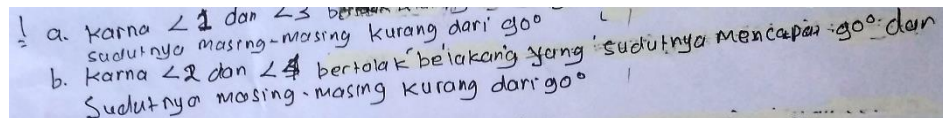 ! a. Karna ∠1 dan ∠3
sudutnya masing-masing kurang dari 90°
b. Karna ∠2 dan ∠4 bertolak belakang yang sudutnya mencapai 90° dan
Sudutnya masing-masing kurang dari 90°